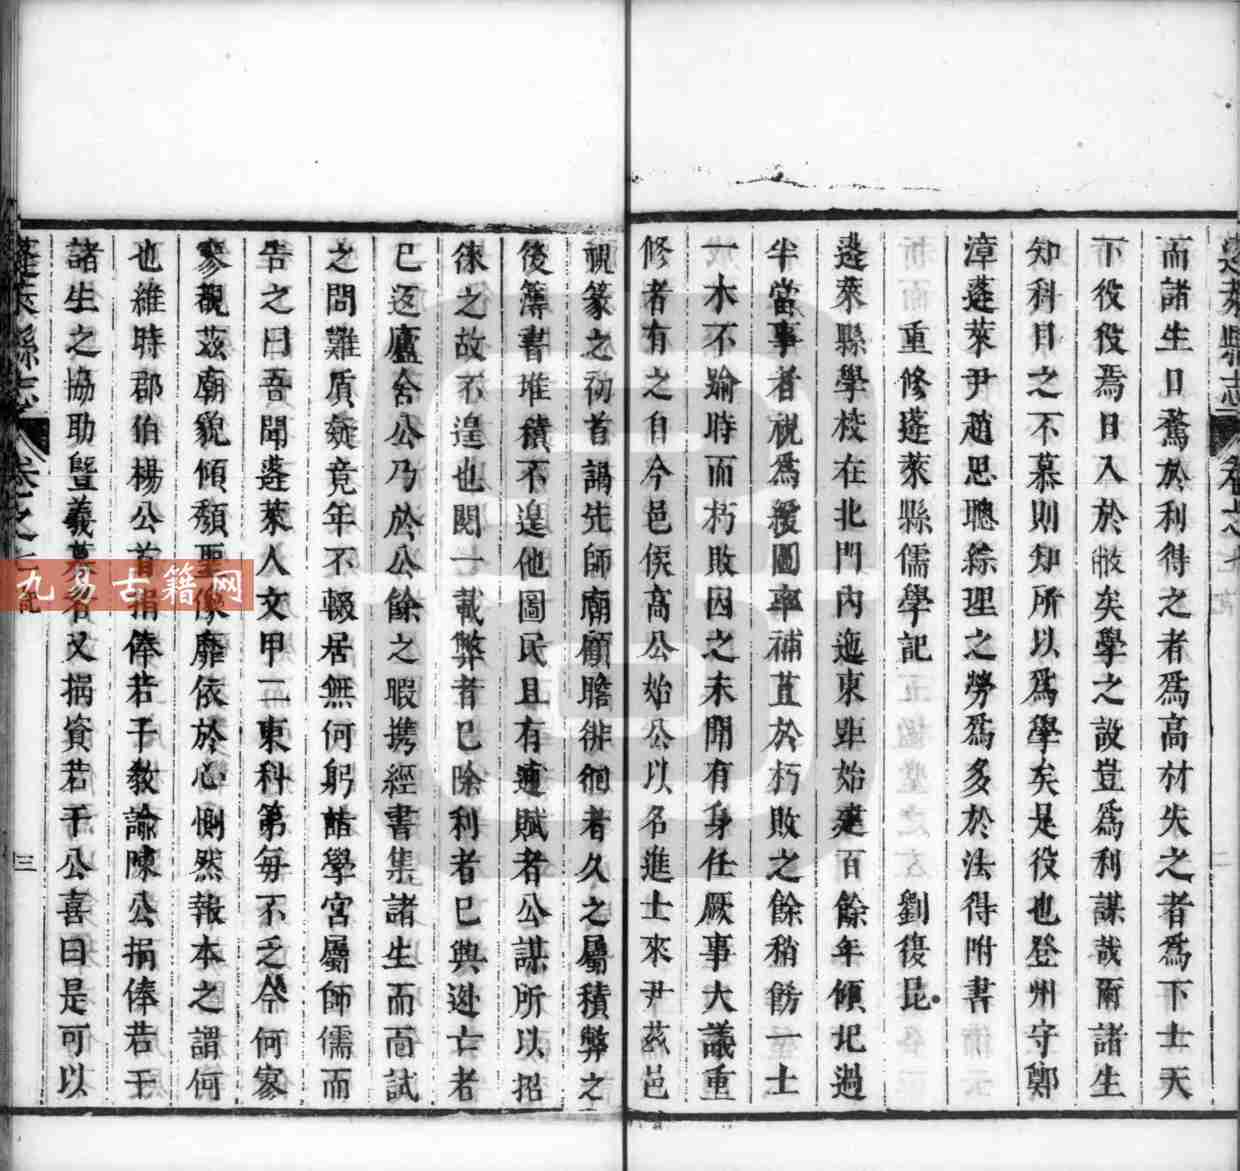 而諸生日騖於利得之者爲高材失之者爲下士天
下役役焉日入於敝矣學之設豈爲利謀哉爾諸生
知科目之不慕則知所以爲學矣是役也登州守鄭
漳蓬萊尹趙思聰綜理之勞爲多於法得附書
重修蓬萊縣儒學記 劉復昆
蓬萊縣學校在北門內迤東距始建百餘年傾圮過
半當事者視爲緩圖率補苴於朽敗之餘稍飭一士
一木不踰時而朽敗因之未聞有身任厥事大議重
修者有之自今邑侯高公始公以名進士來尹茲邑
視篆之初首謁先師廟顧瞻徘徊者久之屬積弊之
後簿書堆積不遑他圖民且有逋賦者公謀所以招
徠之故不遑也閱一載弊者已除利者已興逃亡者
已返廬舍公乃於公餘之暇携經書集諸生而面試
之問難質疑竟年不輟居無何躬詣學宮屬師儒而
告之曰吾聞蓬萊人文甲二東科第每不乏今何寥
寥觀茲廟貌傾頹聖像靡依於心惻然報本之謂何
也維時郡伯楊公首捐俸若干教諭陳公捐俸若干
諸生之協助曁義募者又捐資若干公喜曰是可以
蓬萊縣志 卷之七 三
九易古籍网